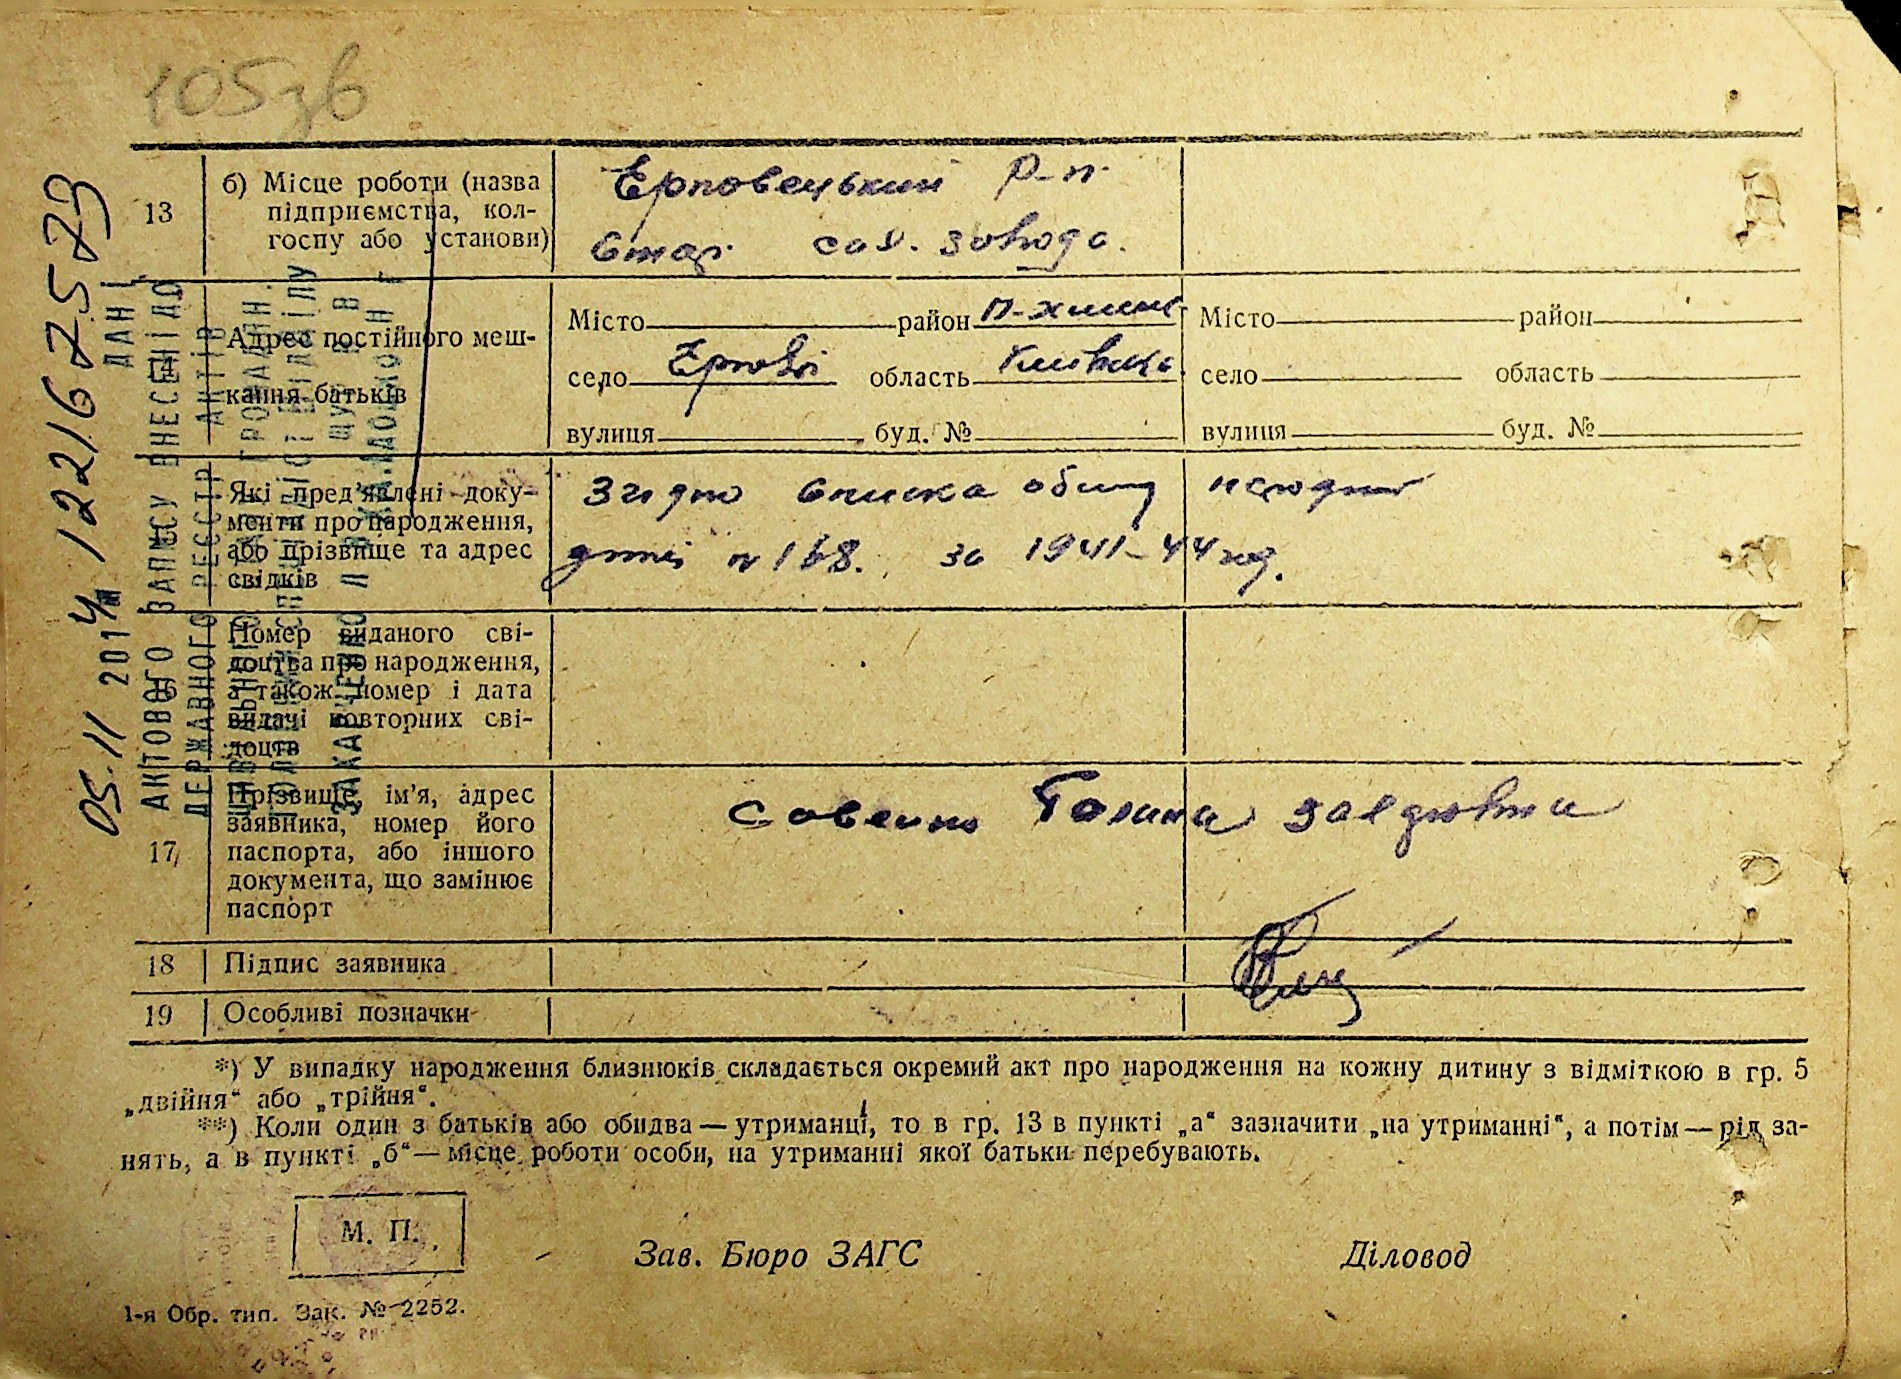 105зв
13
б) Місце роботи (назва
підприємства, кол-
госпу або установи)
Ерковецький
зав. завода.
14
Адрес постійного меш-
кання батьків
Місто район П-Хмель
село Ерківці область Київська
вулиця буд. №
Місто район
село область
вулиця буд. №
Які пред'явлені доку-
менти про народження,
або прізвище та адрес
свідків
Згідно списка народж
дітей № 168. за 1941-44 год.
16
Номер виданого сві-
доцтва про народження,
а також номер і дата
видачі повторних сві-
доцтв
17
Прізвище, ім'я, адрес
заявника, номер його
паспорта, або іншого
документа, що замінює
паспорт
Галина
18 Підпис заявника
19 Особливі позначки
*) У випадку народження близнюків складається окремий акт про народження на кожну дитину з відміткою в гр. 5
„двійня“ або „трійня“.
**) Коли один з батьків або обидва — утриманці, то в гр. 13 в пункті „а“ зазначити „на утриманні“, а потім — рід за-
нять, а в пункті „б“ — місце роботи особи, на утриманні якої батьки перебувають.
М. П.
Зав. Бюро ЗАГС
Діловод
1-я Обр. тип. Зак. № 2252.
05.11 2014 122162573
ДАНІ
АКТОВОГО ЗАПИСУ ВНЕСЕНІ ДО
ДЕРЖАВНОГО РЕЄСТР АКТІВ